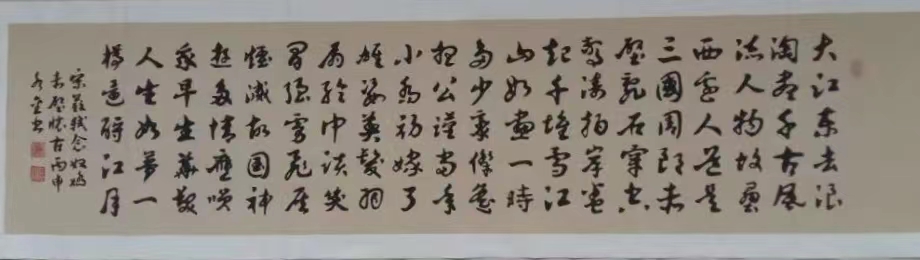 大江东去浪
淘尽千古风
流人物故垒
西边人道是
三國周郎赤
壁乱石穿空
惊涛拍岸卷
起千堆雪江
山如画一时
多少豪傑遥
想公瑾当年
小乔初嫁了
雄姿英发羽
扇纶巾谈笑
间强虏飞灰
烟灭故国神
游多情应笑
我早生华发
人生如梦一
樽还酹江月
宋苏轼念奴娇
赤壁怀古丙申
书